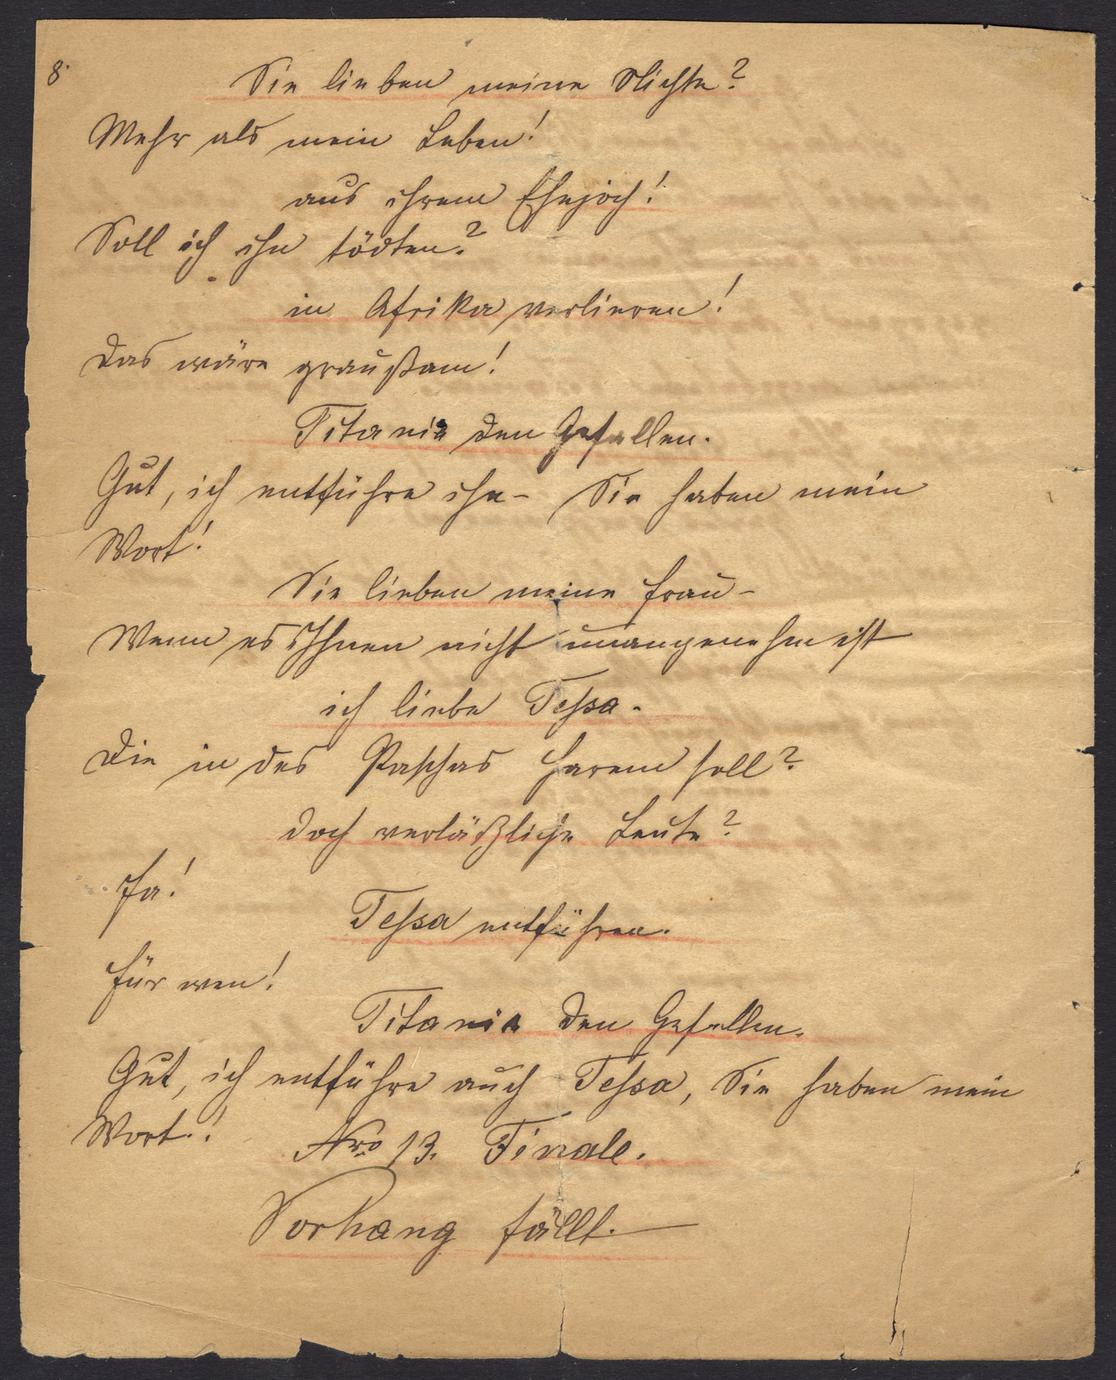 8.
Sie lieben meine Nichte?
Mehr als mein Leben!
aus ihrem Ehejoch!
Soll ich ihn tödten?
in Afrika verlieren!
Das wäre graußam!
Titania den Gefallen.
Gut, ich entführe ihn – Sie haben mein
Wort!
Sie lieben meine Frau –
Wenn es Ihnen nicht unangenehm ist
ich liebe Tessa.
Die in des Paschas Harem soll?
doch verläßliche Leute?
Ja!
Tessa entführen.
Für wen!
Titania den Gefallen.
Gut, ich entführe auch Tessa, Sie haben mein
Wort!
Nro 13. Finale.
Vorhang fällt.